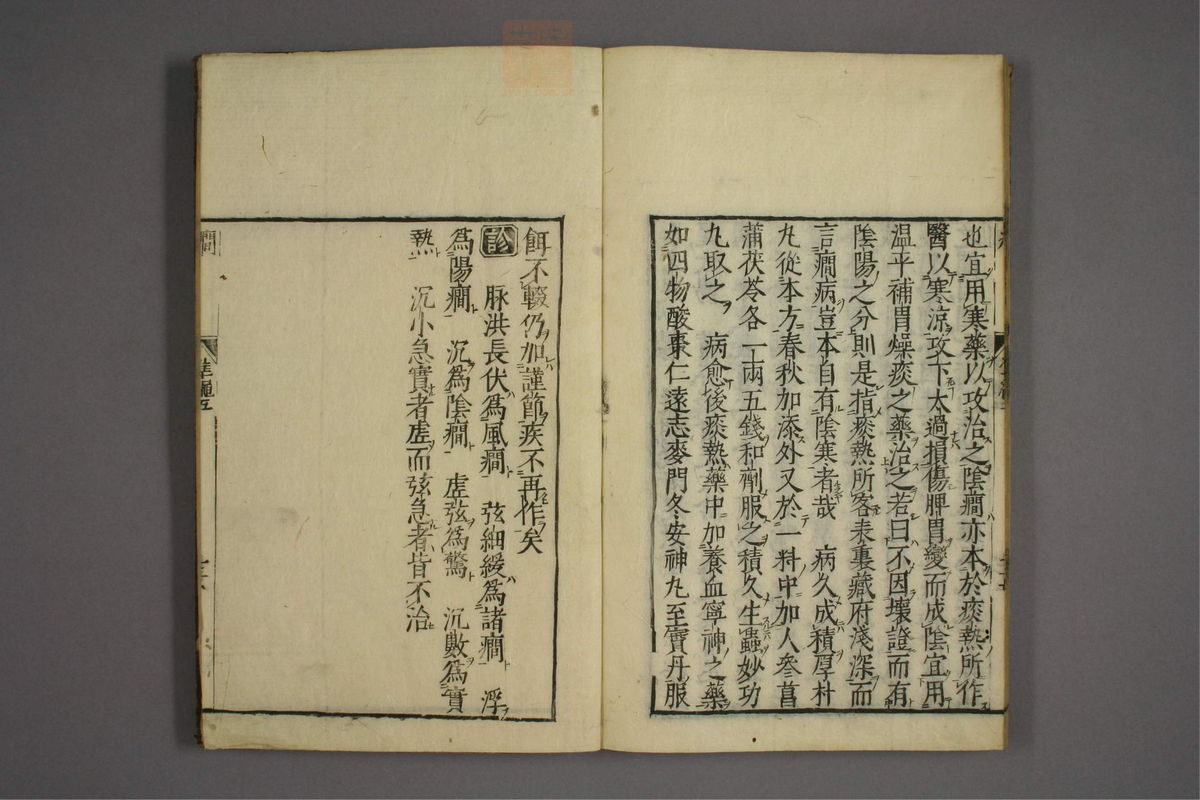 也宜用寒藥以攻治之陰癇亦本於痰熱所作
醫以寒涼攻下太過損傷脾胃變而成陰宜用
温平補胃燥痰之藥治之若曰不因壞證而有
陰陽之分則是指痰熱所客表裏藏府淺深而
言癇病豈本自有陰寒者哉　病久成積厚朴
丸從本方春秋加添外又於一料中加人參菖
蒲茯苓各一兩五錢和劑服之積久生蟲妙功
丸取之　病愈後痰熱藥中加養血寧神之藥
如四物酸棗仁遠志麥門冬安神丸至寶丹服
餌不輟仍加謹節疾不再作矣
診　脉洪長伏爲風癇　弦細緩爲諸癇　浮
爲陽癇　沉爲陰癇　虚弦爲驚　沉數爲實
熱　沉小急實者虚而弦急者皆不治